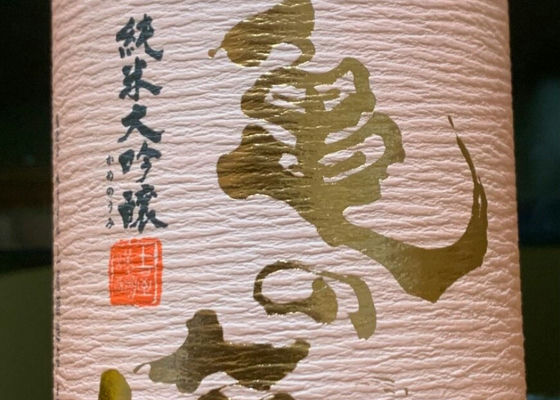 亀の
純米大吟醸
かめのうみ